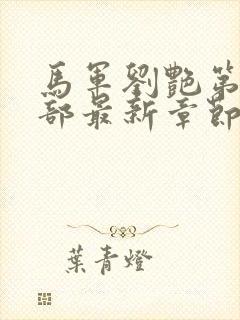 馬軍劉艷第
部最新章節
葉青燈